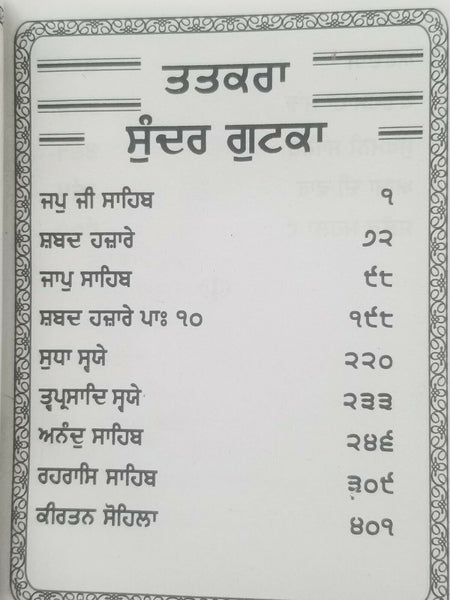 ਤਤਕਰਾ
ਸੁੰਦਰ ਗੁਟਕਾ
ਜਪੁ ਜੀ ਸਾਹਿਬ ੧
ਸ਼ਬਦ ਹਜ਼ਾਰੇ ੭੨
ਜਾਪੁ ਸਾਹਿਬ ੯੮
ਸ਼ਬਦ ਹਜ਼ਾਰੇ ਪਾਃ ੧੦ ੧੯੮
ਸੁਧਾ ਸ੍ਵਯੇ ੨੨੦
ਤ੍ਵਪ੍ਰਸਾਦਿ ਸ੍ਵਯੇ ੨੩੩
ਅਨੰਦੁ ਸਾਹਿਬ ੨੪੬
ਰਹਰਾਸਿ ਸਾਹਿਬ ੩੦੯
ਕੀਰਤਨ ਸੋਹਿਲਾ ੪੦੧